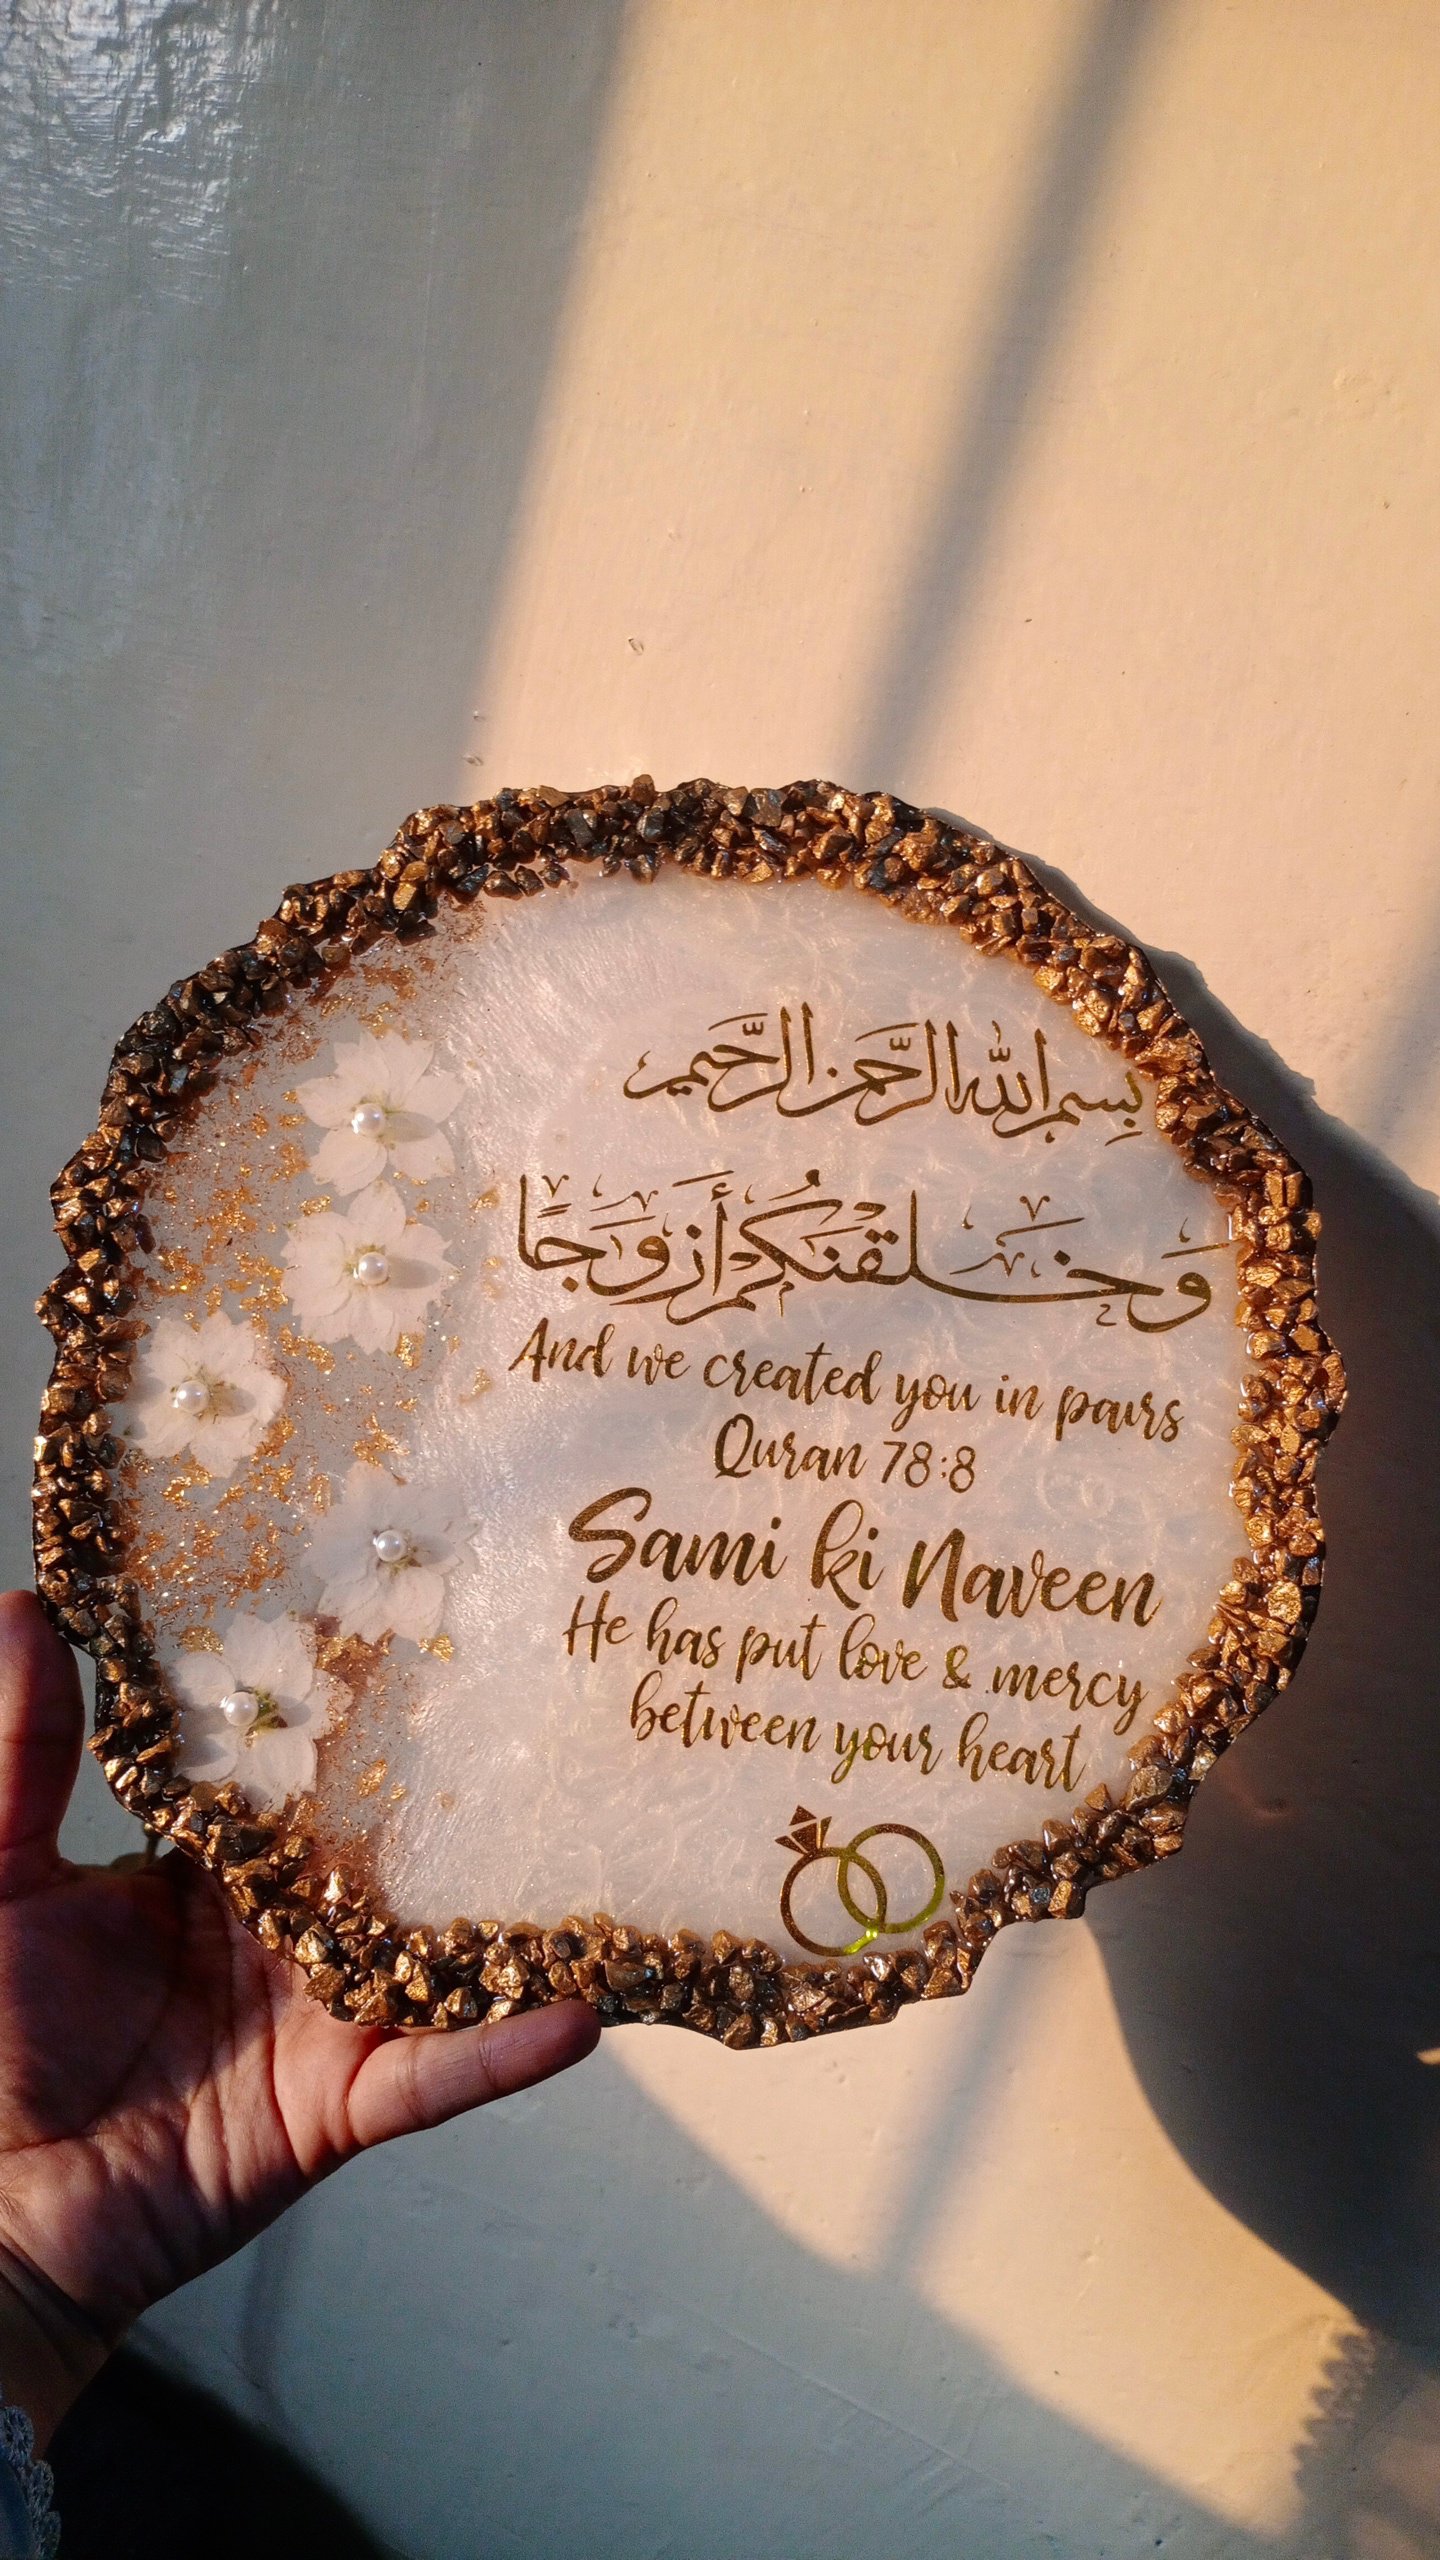 بِسمِ اللهِ الرَّحمنِ الرَّحيمِ
وَخَلَقنَكُم أَزوَجًا
And we created you in pairs
Quran 78:8
Sami ki Naveen
He has put love & mercy
between your heart